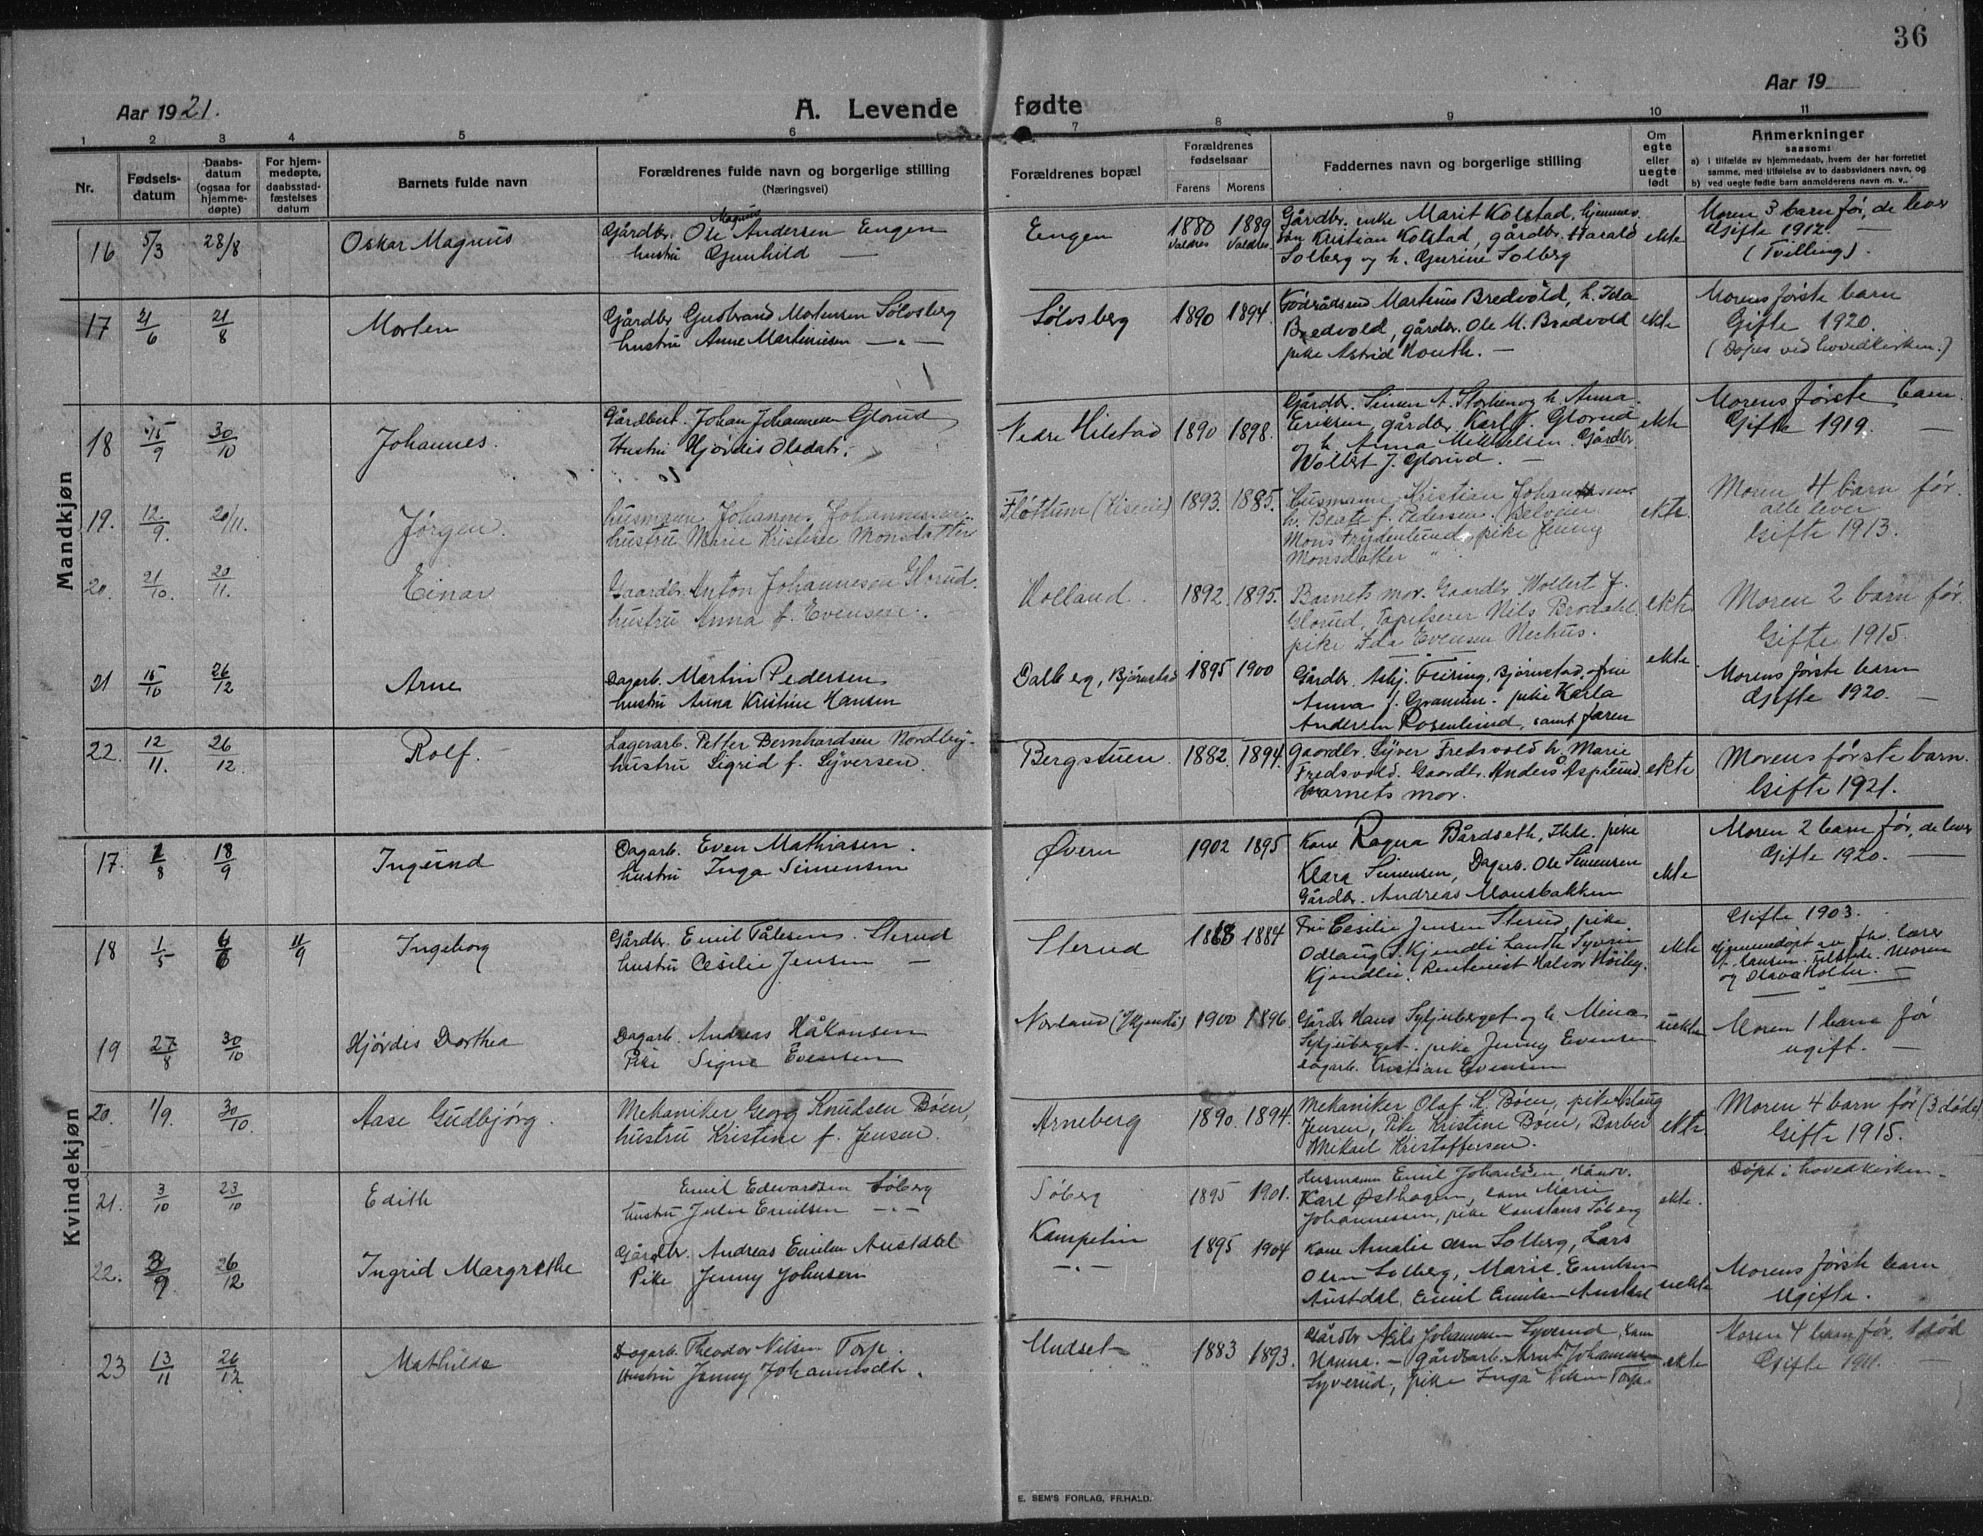 36
Aar 1921.
A. Levende fødte
Aar 19
1 2 3 4 5 6 7 8 9 10 11
Nr.
Fødsels-
datum
Daabs-
datum
(ogsaa for
hjemme-
døpte)
For hjem-
medøpte,
daabsstad-
fæstelses
datum
Barnets fulde navn
Forældrenes fulde navn og borgerlige stilling
(Næringsvei)
Forældrenes bopæl
Forældrenes
fødselsaar
Farens Morens
Faddernes navn og borgerlige stilling
Om
egte
eller
uegte
født
Anmerkninger
saasom:
a) i tilfælde av hjemmedaab, hvem der har forrettet
samme, med tilføielse av to daabsvidners navn, og
b) ved uegte fødte barn anmelderens navn m. v..
Mandkjøn
16 5/3 28/8 Oskar Magnus
Magnus
Gårdbr. Ole Andersen Engen
hustru Gunhild —
Engen
1880 1889
Valdres Valdres
Gårdbr. enke Marit Kolstad, hjemmev.
søn Kristian Kolstad, gårdbr. Harald
Solberg og h. Gurine Solberg
ekte
Moren 3 barn før, de lever
Gifte 1912. —
(Tvilling).
17 21/6 21/8 Morten
Gårdbr Gudbrand Mortensen Sølvsberg
hustru Anne Martinusen — " —
Sølvsberg
1890 1894.
Födrådsmd Martinus Bredvold, h. Ida
Bredvold, gårdbr. Ole M. Bredvold
pike Astrid Kouth. —
ekte
Morens første barn
Gifte 1920.
(Døpes ved hovedkirken.)
18 15/9 30/10 Johannes.
Johan Johannesen Glorud
Hustru Hjördis Olsdatr.
Nedre Hilstad
1890 1898.
Gårdbr. Simen A. Storhenog h. Anna
Eriksen, gårdbr. Karl J. Glorud
og h. Anna Mikkelsen. Gårdbr
Wollert J. Glorud. —
ekte
Morens første barn
Gifte 1919. —
19. 12/9. 20/11. Jørgen.
husmann Johannes Johannessen
hustru Marie Kristine Monsdatter
Fløttum
1893. 1885.
husmann Kristian Johannesen.
h. Beate f. Pedersen.
Mons pike Jenny
Monsdatter "
ekte.
Moren 4 barn før.
alle lever
Gifte 1913.
20. 21/10. 20/11. Einar
Gaardbr. Anton Johannesen Glorud.
hustru Anna f. Evensen.
Holland.
1892. 1895.
Barnets mor. Gaardbr. Wollert J.
Glorud, Tapetserer Nils Brodahl
pike Ida Evensen Nerhus.
ekte
Moren 2 barn før.
Gifte 1915.
21 15/10 26/12 Arne
Dagarb. Martin Pedersen
hustru Anna Kristine Hansen
Dalberg, Bjørnstad
1895 1900
Gårdbr. Asbj. Feiring, Bjørnstad, frue
Anna J. pike Karla
Andersen Rosenlund, samt faren
ekte.
Morens første barn
Gifte 1920. —
22. 12/11. 26/12. Rolf.
Lagerarb. Petter Bernhardsen Nordby.
hustru Sigrid f. Syversen.
Bergstuen.
1882. 1894.
Gaardbr. Syver Fredsvold h. Marie
Fredsvold. Gaardbr. Anders Asplund.
barnets mor.
ekte
Morens første barn.
Gifte 1921.
Kvindekjøn
17. 1/8 18/9 Ingrind
Dagarb. Even Mathiasen.
hustru Inga Simensen
Øvern
1902 1895
Kone Ragna Bårdseth, pike
Klara Simensen, Dagarb. Ole Simensen
Gårdbr. Andreas Monsbakken
ekte
Moren 2 barn før, de lever
Gifte 1920. —
18 1/5 6/6 11/9 Ingeborg
Gårdbr. Emil Pålesens. Sterud
hustru Cesilie Jensen —
Sterud
1868 1884
Fru Cesilie Jensen Sterud, pike
Odlaug S. Kjendli Syverin
Kjendlie, Rentenist Halvor Höiby.
ekte
Gifte 1903.
Hjemmedøpt av lærer
Hansen. Moren
og Olava Holter. —
19 27/8 30/10 Hjørdis Dorthea
Dagarb. Andreas Håkonsen
Pike Signe Evensen
Norland
1900 1896
Gårdbr Hans Syljuberget og h. Mina
Syljuberget. pike Jenny Evensen
dagarb. Kristian Evensen
uekte
Moren 1 barn før
ugift. —
20. 1/9. 30/10. Aase Gudbjørg.
Mekaniker Georg Knudsen Bøen,
hustru Kristine f. Jensen.
Arneberg
1890. 1894.
Mekaniker Olaf K. Bøen, pike Aslaug
Jensen, Pike Kristine Bøen, Barber
Mikael Kristoffersen.
ekte
Moren 4 barn før (3 døde)
Gifte 1915.
21. 3/10 23/10 Edith
Emil Edvardsen Söberg
hustru Julie Emilsen — " —
Söberg
1895 1901.
Husmann Emil Johansen, Handv.
Karl Østhagen, kone Marie
Johannessen, pike Konstans Søberg
ekte.
Døpt i hovedkirken —
22. 3/9 26/12 Ingrid Margrethe
Gårdbr. Andreas Emilsen Austdal
Pike Jenny Johnsen
— " —
1895 1904
Kone Amalie Olsen Solberg, Lars
Olsen Solberg, Marie Emilsen
Austdal, Emil Emilsen Austdal
uekte
Morens første barn
Ugifte.
23 13/11 26/12 Mathilde
Dagarb. Theodor Nilsen Torp.
Hustru Jenny Johannesdtr.
Undset
1883 1893.
Gårdbr Nils Johannesen Syverud, kone
Hanna. — gårdsarb. Johannesen
Syverud, pike Inga Nilsen Torp.
ekte
Moren 4 barn før, 1 død
Gifte 1911. —
E. SEM'S FORLAG, FR.HALD.